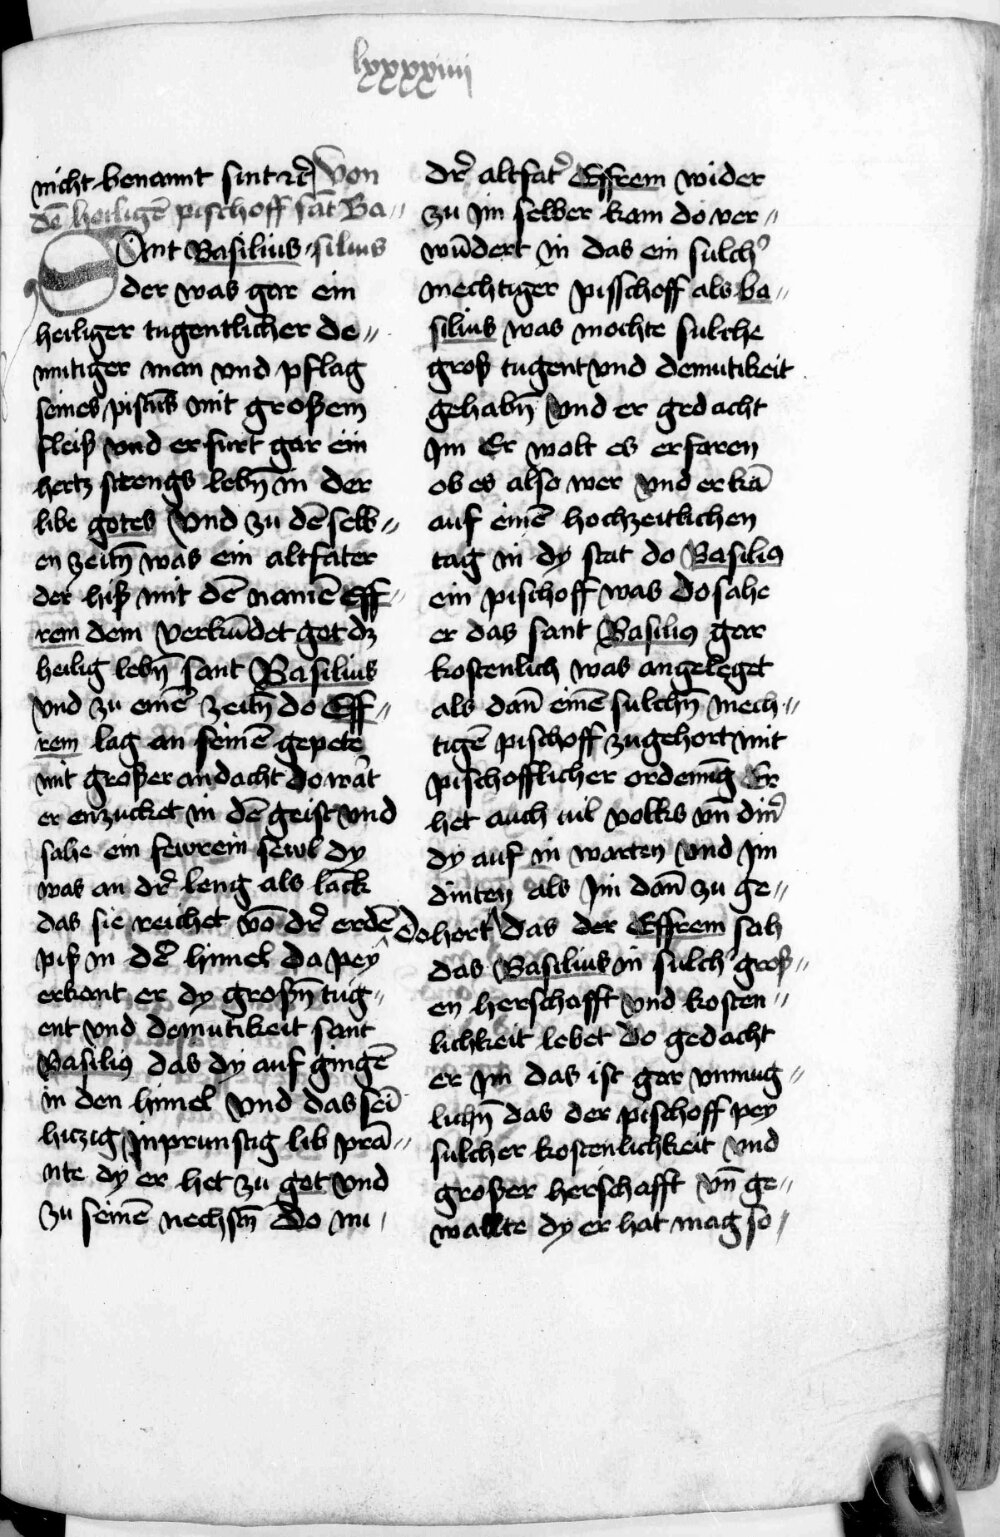 lxxxxiiii
nicht benannt sint ⁊c̃ Von
dē heiligē pischoff sāt Ba//
SAnt Basilius silius
der was gar ein
heiliger tugentlicher de//
mutiger man vnd pflag
seines pistūs mit großem
fleiß vnd er furt gar ein
hertz strengs lebn̄ in der
libe gotes Vnd zu dē selb//
en zeitn̄ was ein altfater
der hiß mit dē namē Eff//
rem dem verkūdet got dz
heilig lebn̄ sant Basilius
vnd zu einē zeitn̄ do Eff//
rem lag an seinē gepete
mit großer andacht do wāt
er enzucket in dē geist vnd
sahe ein fewrein sewl dy
was an dr̃ leng als lāck
das sie reichet vō dr̃ erdē
piß in dē himel da pey
erkant er dy großn̄ tug//
ent vnd demutikeit sant
Basiliꝰ das dy auf gingē
in den himel Vnd das sei
hiczig Inprunstig lib prā//
nte dy er het zu got vnd
zu seinē nechstn̄ Do nu
dr̃ altfat̃ Effrem wider
zu Im selber kam do ver//
wūdert in das ein sulch̃
mechtiger pisschoff als ba//
silius was mochte sulche
groß tugent vnd demutikeit
gehabn̄ Vnd er gedacht
Im Er wolt es erfaren
ob es also wer Vnd er kā
auf einē hochzeitlichen
tag in dy stat do Basiliꝰ
ein pischoff was Do sahe
er das sant Basiliꝰ gar
kostenlich was angeleget
als dan̄ einē sulchn̄ mech//
tigē pischoff zugehort mit
pischofflicher ordenūg Er
het auch vil volks vn̄ din̄
dy auf in warten Vnd Im
dinten als Im dan̄ zu ge//
hort Do das der Effrem sah
das Basilius in sulch̃ groß//
en herschafft Vnd kosten//
lichkeit lebet Do gedacht
er Im das ist gar vnmug//
lichn̄ das der pischoff pey
sulcher kostenlichkeit Vnd
großer herschafft vn̄ ge//
wallte dy er hat mag so/